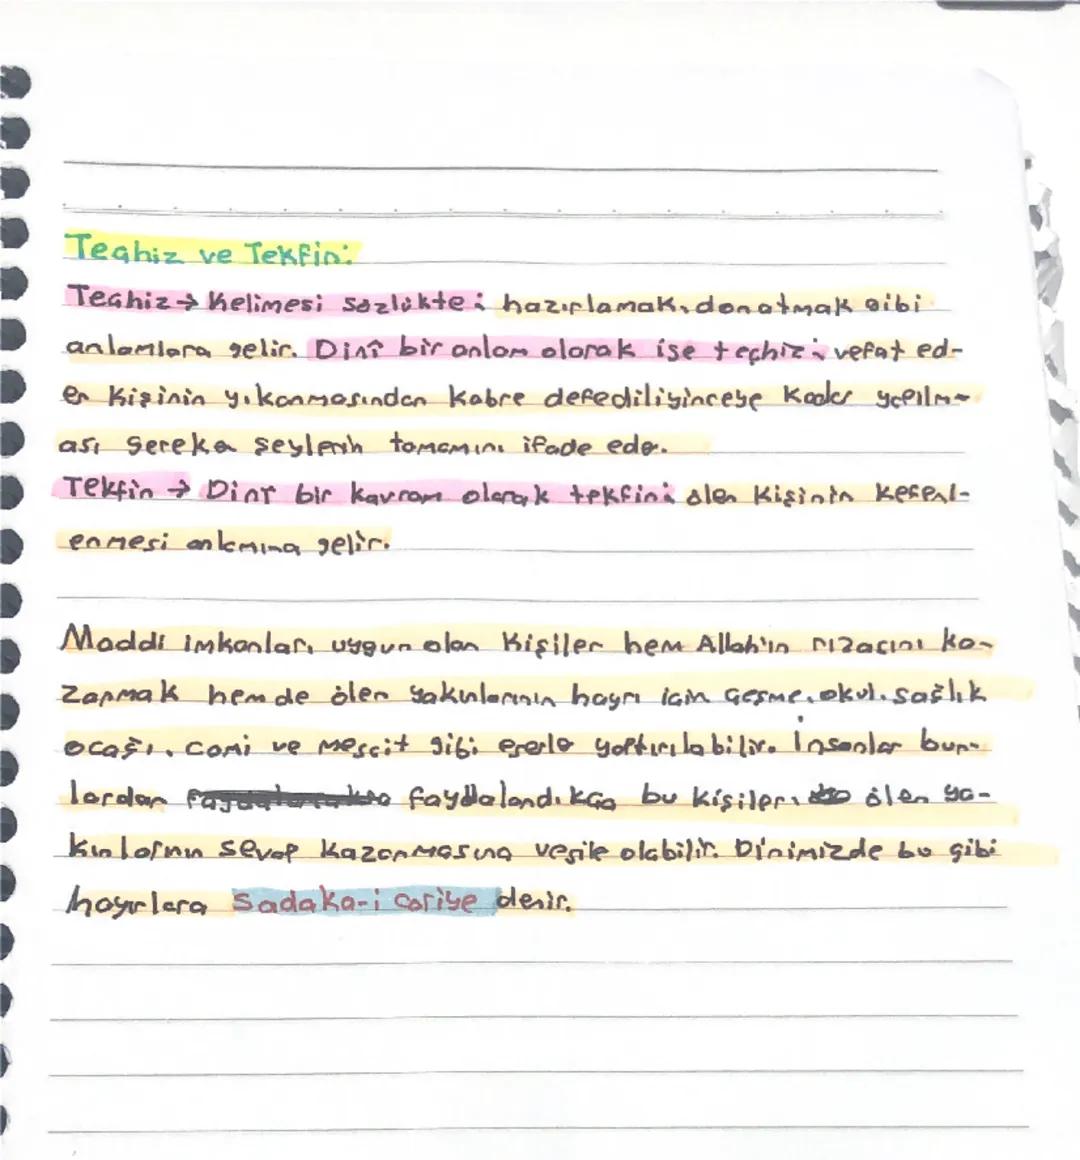 Teçhiz ve Tekfin:
Teçhiz → Kelimesi sözlükte; hazırlamak, donatmak gibi
anlamlara gelir. Dinî bir anlam olarak ise teçhiz; vefat ed-
en kişinin yıkanmasından kabre defediliyinceye kadar yapılm-
ası gereken şeylerin tamamını ifade eder.
Tekfin → Dinî bir kavram olarak tekfin; ölen kişinin kefenl-
enmesi anlamına gelir.
Maddi imkanları uygun olan kişiler hem Allah'ın rızasını ka-
zanmak hem de ölen yakınlarının hayrı için çeşme, okul, sağlık
ocağı, cami ve mescit gibi eserler yaptırılabilir. İnsanlar bun-
lardan faydalandıkça bu kişiler, ölen ya-
kınlarının sevap kazanmasına vesile olabilir. Dinimizde bu gibi
hayırlara Sadaka-i cariye denir.